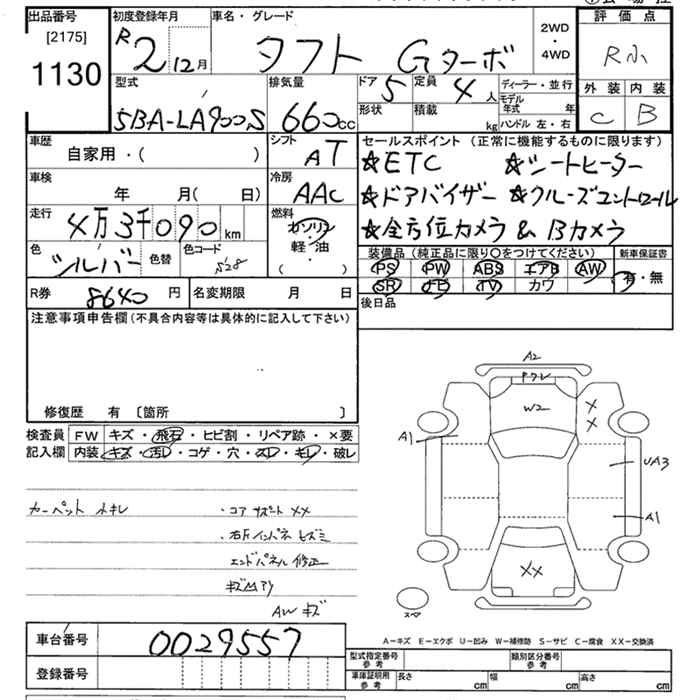 出品番号
[2175]
1130
初度登録年月
R2 12月
車名・グレード
タフト Gターボ
2WD
・
4WD
評価点
R
外装 内装
C B
型式
5BA-LA900S
排気量
660cc
ドア 5
定員 4人
形状
積載 kg
ディーラー・並行
モデル年式 年
ハンドル 左・右
車歴
自家用・( )
シフト
AT
セールスポイント (正常に機能するものに限ります)
☆ETC ☆シートヒーター
☆ドアバイザー ☆クルーズコントロール
☆全方位カメラ & Bカメラ
車検
年 月( 日)
冷房
AAC
走行
4万3千090km
燃料
ガソリン
軽・油
( )
色
シルバー
色替
色コード
S28
装備品 (純正品に限り○をつけてください)
PS PW ABS エアB AW
SR ナビ TV カワ
新車保証書
有・無
R券 8640円
名変期限 月 日
後日品
注意事項申告欄 (不具合内容等は具体的に記入して下さい)
修復歴 有 〔箇所 〕
検査員記入欄
FW キズ・飛石・ヒビ割・リペア跡・×要
内装 キズ・汚レ・コゲ・穴・スレ・キレ・破レ
カーペット
・コアサポート XX
エンドパネル 修正
AW キズ
A2
W2
X
X
A1
UA3
A1
XX
スペア
A−キズ E−エクボ U−凹み W−補修跡 S−サビ C−腐食 XX−交換済
車台番号 0029557
登録番号
型式指定番号
参考
類別区分番号
参考
車庫証明用
参考
長さ cm
幅 cm
高さ cm